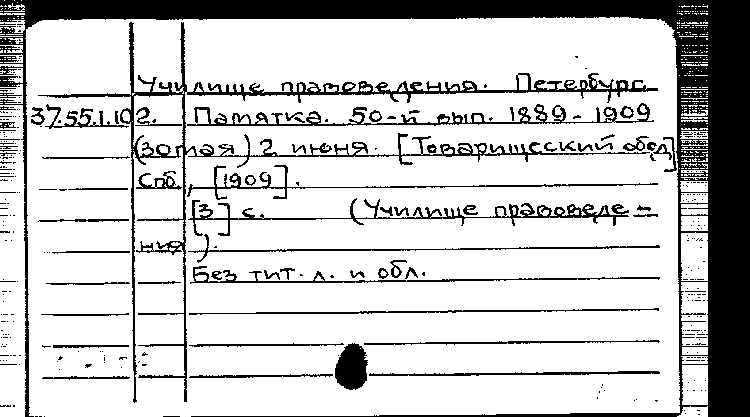 Училище правоведения. Петербург
37.55.1.102. Памятка. 50-й вып. 1889-1909
(30 мая) 2 июня. [Товарищеский обед]
Спб., [1909].
[3] с. (Училище правоведе-
ния).
Без тит. л. и обл.